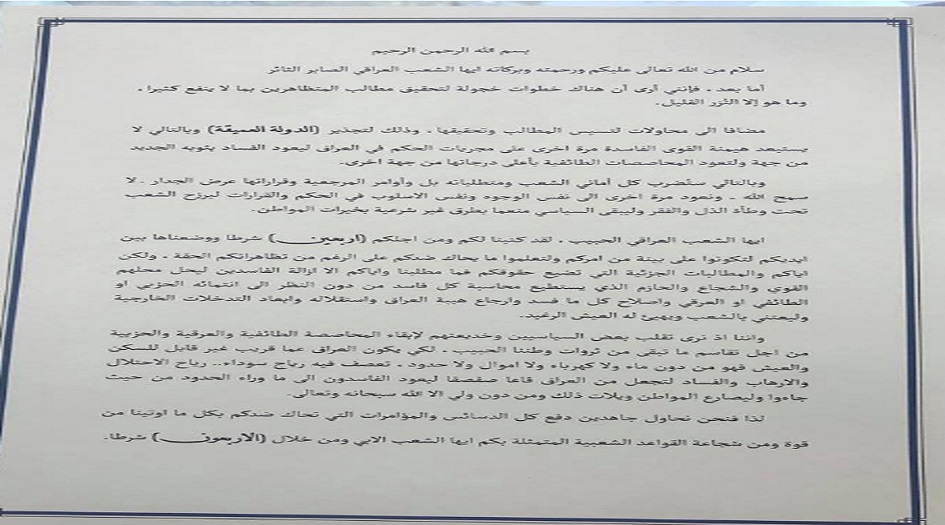 بسم الله الرحمن الرحيم
سلام من الله تعالى عليكم ورحمته وبركاته ايها الشعب العراقي الصابر الثائر
أما بعد ، فإنني أرى أن هناك خطوات خجولة لتحقيق مطالب المتظاهرين بما لا ينفع كثيرا ،
وما هو إلا النُزر القليل.
مضافا الى محاولات لتسيس المطالب وتحقيقها ، وذلك لتجذير (الدولة العميقة) وبالتالي لا
يستبعد هيمنة القوى الفاسدة مرة اخرى على مجريات الحكم في العراق ليعود الفساد بثوبه الجديد
من جهة ولتعود المحاصصات الطائفية بأعلى درجاتها من جهة اخرى.
وبالتالي ستُضرب كل أماني الشعب ومتطلباته بل وأوامر المرجعية وقراراتها عرض الجدار ، لا
سمح الله ، ونعود مرة اخرى الى نفس الوجوه ونفس الاسلوب في الحكم والقرارات ليرزح الشعب
تحت وطأة الذل والفقر وليبقى السياسي منعما بطرق غير شرعية بخيرات المواطن.
ايها الشعب العراقي الحبيب ، لقد كتبنا لكم ومن اجلكم (اربعين) شرطا ووضعناها بين
ايديكم لتكونوا على بينة من امركم ولتعلموا ما يحاك ضدكم على الرغم من تظاهراتكم الحقة ، ولكن
اياكم والمطالبات الجزئية التي تضيع حقوقكم فما مطلبنا واياكم الا ازالة الفاسدين ليحل محلهم
القوي والشجاع والحازم الذي يستطيع محاسبة كل فاسد من دون النظر الى انتمائه الحزبي او
الطائفي او العرقي واصلاح كل ما فسد وارجاع هيبة العراق واستقلاله وابعاد التدخلات الخارجية
وليعتني بالشعب ويهيئ له العيش الرغيد.
واننا اذ نرى تقلب بعض السياسيين وخديعتهم لإبقاء المحاصصة الطائفية والعرقية والحزبية
من اجل تقاسم ما تبقى من ثروات وطننا الحبيب ، لكي يكون العراق عما قريب غير قابل للسكن
والعيش فهو من دون ماء ولا كهرباء ولا اموال ولا حدود ، تعصف فيه رياح سوداء.. رياح الاحتلال
والارهاب والفساد لتجعل من العراق قاعا صفصفا ليعود الفاسدون الى ما وراء الحدود من حيث
جاءوا وليصارع المواطن ويلات ذلك ومن دون ولي الا الله سبحانه وتعالى.
لذا فنحن نحاول جاهدين دفع كل الدسائس والمؤامرات التي تحاك ضدكم بكل ما اوتينا من
قوة ومن شجاعة القواعد الشعبية المتمثلة بكم ايها الشعب الابي ومن خلال (الاربعون) شرطا.